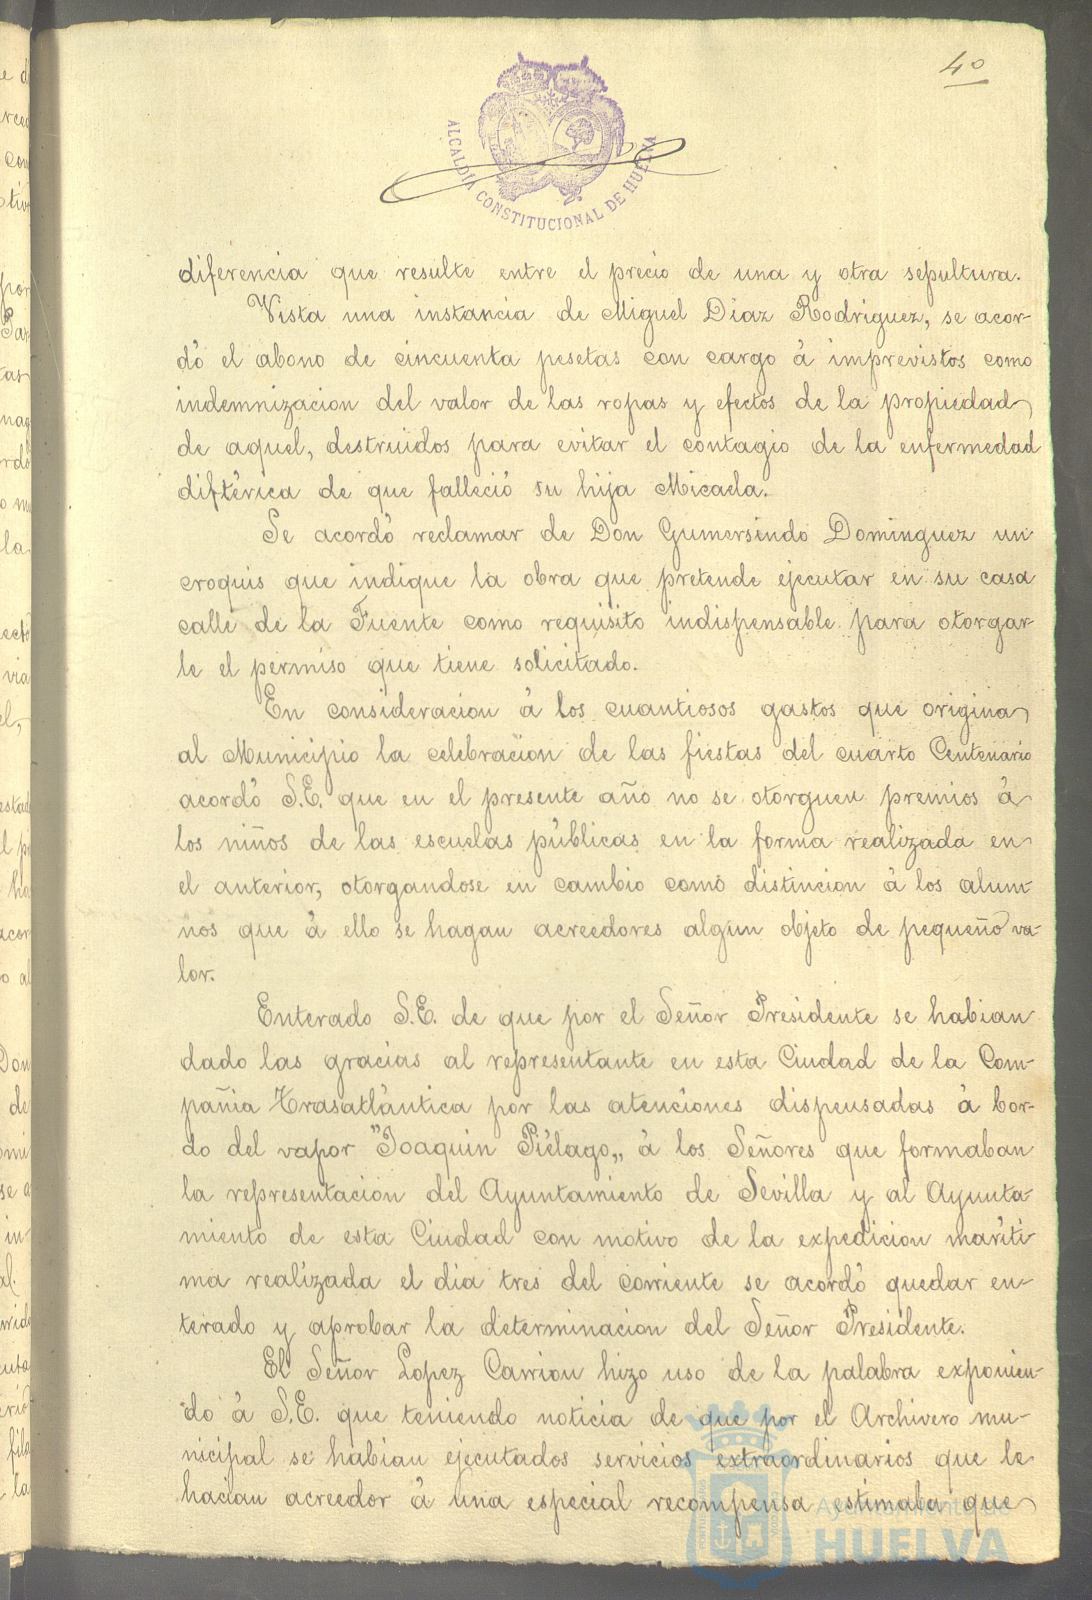 40
ALCALDÍA CONSTITUCIONAL DE HUELVA
diferencia que resulte entre el precio de una y otra sepultura.
Vista una instancia de Miguel Diaz Rodriguez, se acor-
dó el abono de cincuenta pesetas con cargo á imprevistos como
indemnizacion del valor de las ropas y efectos de la propiedad
de aquel, destruidos para evitar el contagio de la enfermedad
diftérica de que falleció su hija Micaela.
Se acordó reclamar de Don Gumersindo Dominguez un
croquis que indique la obra que pretende ejecutar en su casa
calle de la Fuente como requisito indispensable para otorgar-
le el permiso que tiene solicitado.
En consideracion á los cuantiosos gastos que origina
al Municipio la celebracion de las fiestas del cuarto Centenario
acordó S.E. que en el presente año no se otorguen premios á
los niños de las escuelas públicas en la forma realizada en
el anterior, otorgandose en cambio como distincion á los alum-
nos que á ello se hagan acreedores algun objeto de pequeño va-
lor.
Enterado S.E. de que por el Señor Presidente se habian
dado las gracias al representante en esta Ciudad de la Com-
pañia Trasatlántica por las atenciones dispensadas á bor-
do del vapor "Joaquin Piélago„ á los Señores que formaban
la representacion del Ayuntamiento de Sevilla y al Ayunta-
miento de esta Ciudad con motivo de la expedicion maríti-
ma realizada el dia tres del corriente se acordó quedar en-
terado y aprobar la determinacion del Señor Presidente.
El Señor Lopez Carrion hizo uso de la palabra exponien-
do á S.E. que teniendo noticia de que por el Archivero mu-
nicipal se habian ejecutados servicios extraordinarios que le
hacian acreedor á una especial recompensa estimaba que
Ayuntamiento de
HUELVA